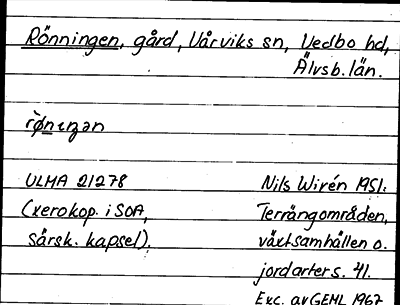 Rönningen, gård, Vårviks sn, Vedbo hd,
Älvsb. län.
ULMA 21278
(xerokop. i SOA,
särsk. kapsel).
Nils Wirén 1951:
Terrängområden,
växtsamhällen o.
jordarter s. 41.
Exc. av GEML 1967